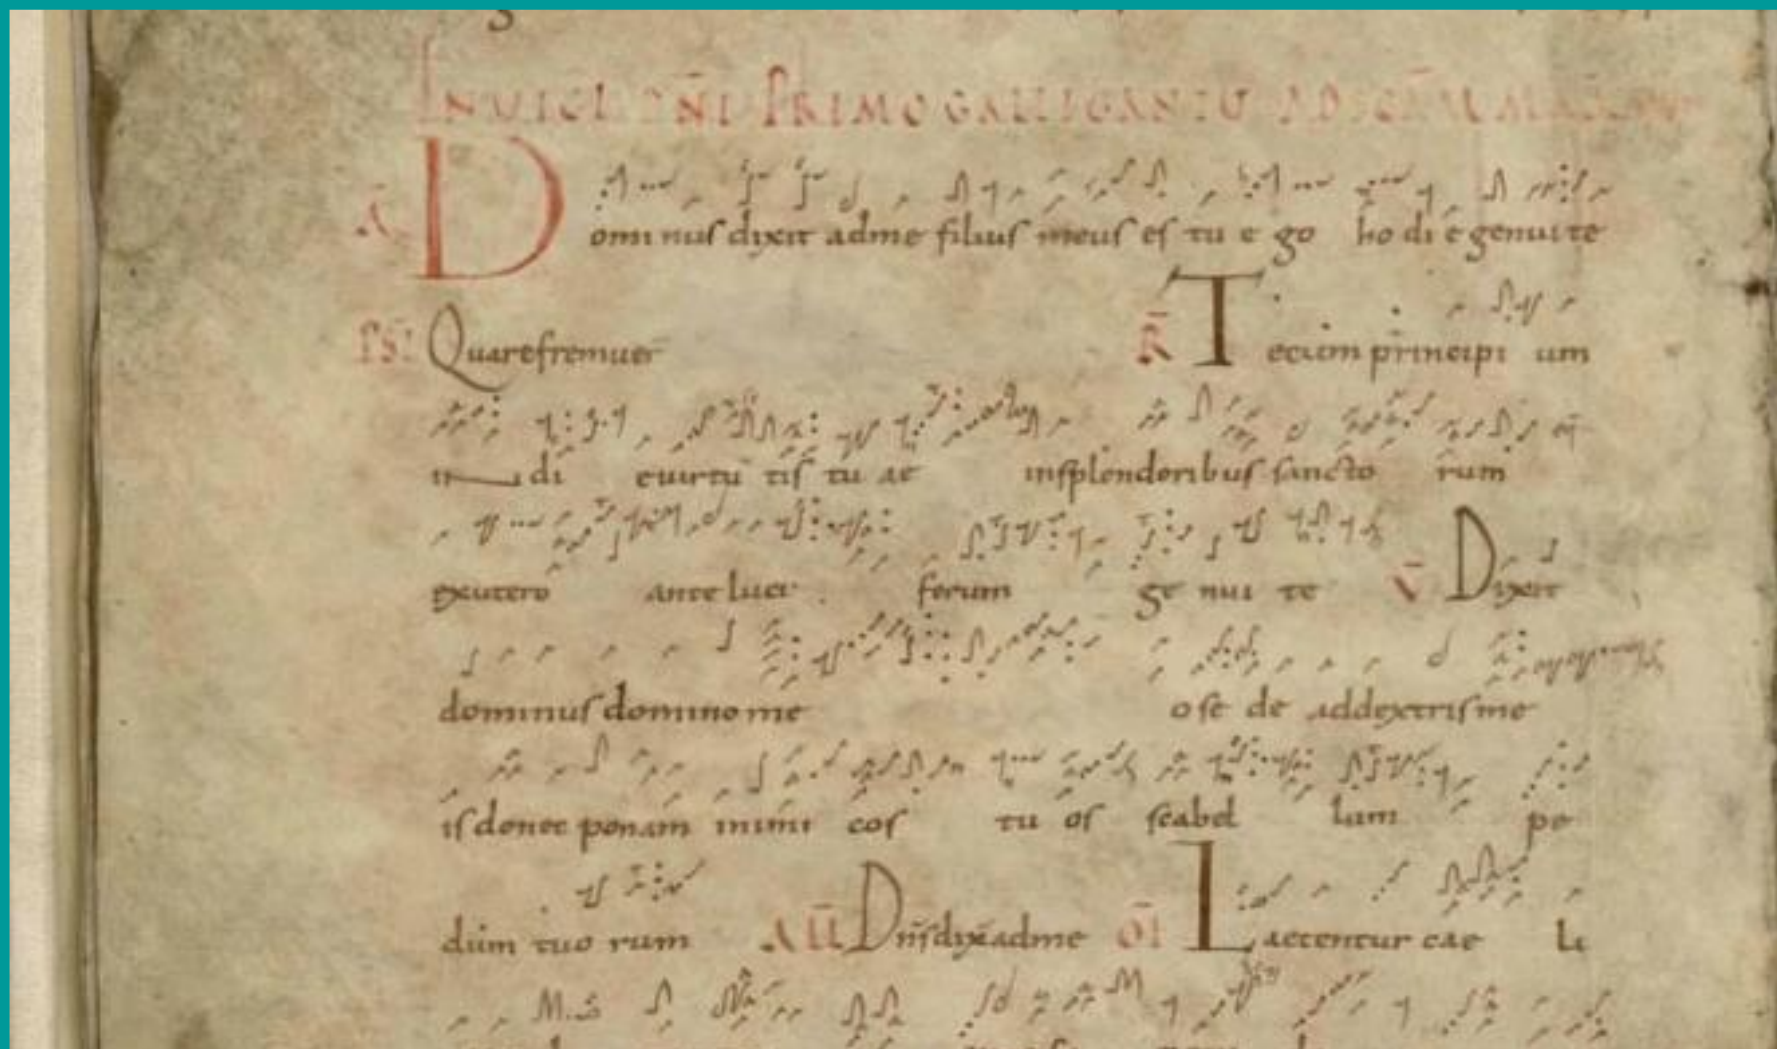 IN UIGL DNI PRIMO GALLI CANTU AD SCAM MARIAM
A Dominus dixit ad me filius meus es tu ego hodie genui te
PS Quare fremuer R Tecum principi um
in di e uirtu tis tu ae in splendoribus sancto rum
ex utero ante luci ferum ge nui te V Dixit
dominus domino me o se de ad dextris me
is donec ponam inimi cos tu os scabel lum pe
dum tuo rum AU Dns dix ad me OF Laetentur cae li